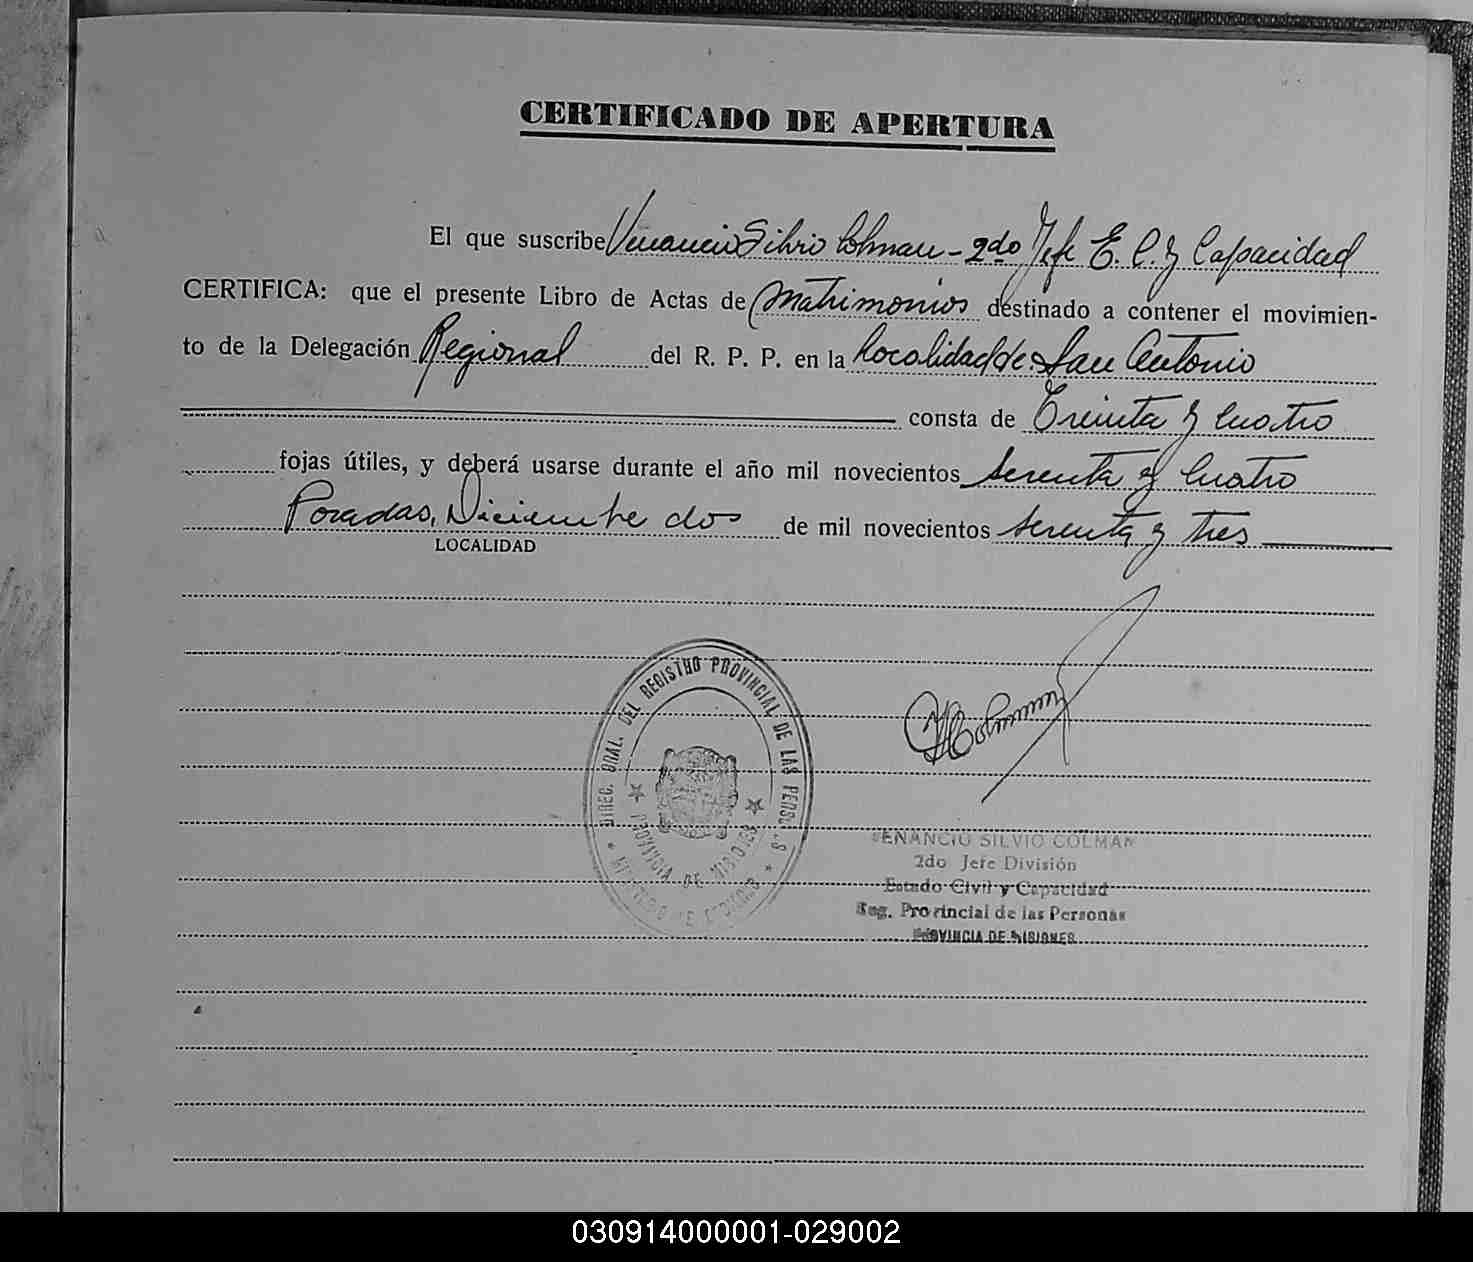 CERTIFICADO DE APERTURA
El que suscribe Venancio Silvio Colman - 2do Jefe E. C. y Capacidad
CERTIFICA: que el presente Libro de Actas de Matrimonios destinado a contener el movimien-
to de la Delegación Regional del R. P. P. en la Localidad de San Antonio
consta de Treinta y Cuatro
fojas útiles, y deberá usarse durante el año mil novecientos setenta y cuatro
Posadas, Diciembre dos de mil novecientos setenta y tres
LOCALIDAD
DIREC. GRAL. DEL REGISTRO PROVINCIAL DE LAS PERSONAS
PROVINCIA DE MISIONES
MINISTERIO DE GOBIERNO
VSColman
VENANCIO SILVIO COLMAN
2do Jefe División
Estado Civil y Capacidad
Reg. Provincial de las Personas
PROVINCIA DE MISIONES
030914000001-029002